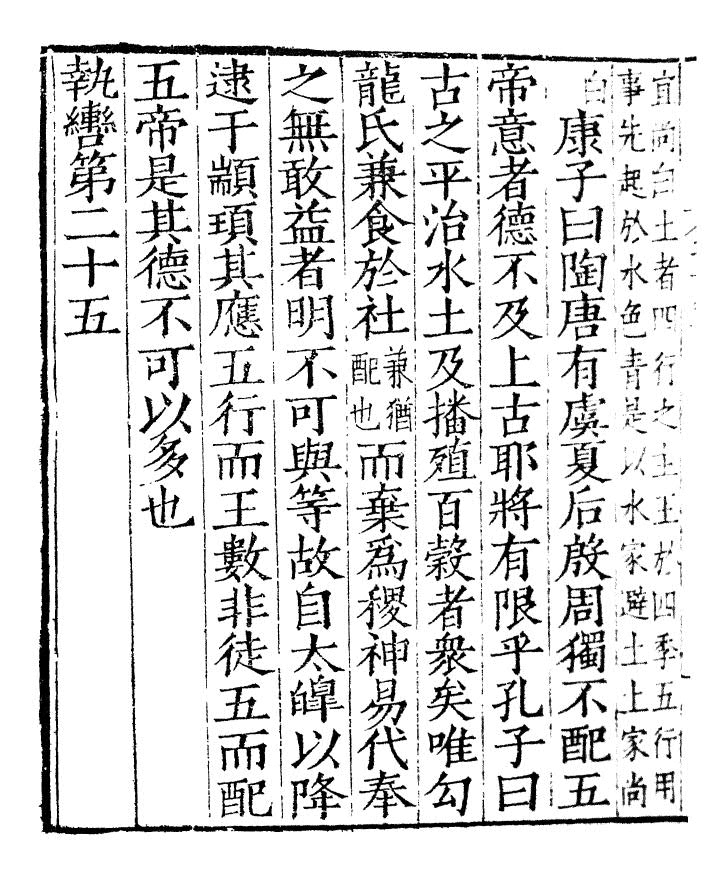 宜尚白土者四行之主王於四季五行用
事先起於水色青是以水家避土土家尚
白
康子曰陶唐有虞夏后殷周獨不配五
帝意者德不及上古耶將有限乎孔子曰
古之平治水土及播殖百穀者衆矣唯勾
龍氏兼食於社兼猶配也而棄爲稷神易代奉
之無敢益者明不可與等故自太皥以降
逮于顓頊其應五行而王數非徒五而配
五帝是其德不可以多也
執轡第二十五